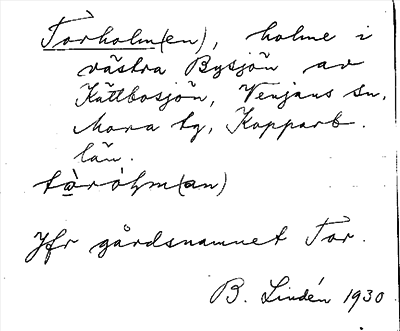 Torholm(en), holme i
västra Bysjön av
Kättbosjön, Venjans sn,
Mora tg, Kopparb.
län.
tòróḷm(an)
Jfr gårdsnamnet Tor.
B. Lindén 1930